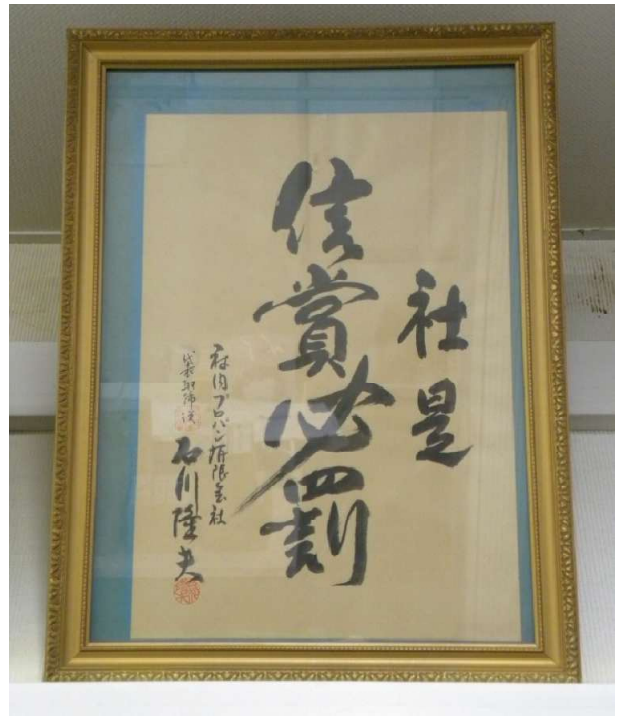 社是
信賞必罰
内プロパン有限会社
代表取締役
石川隆夫